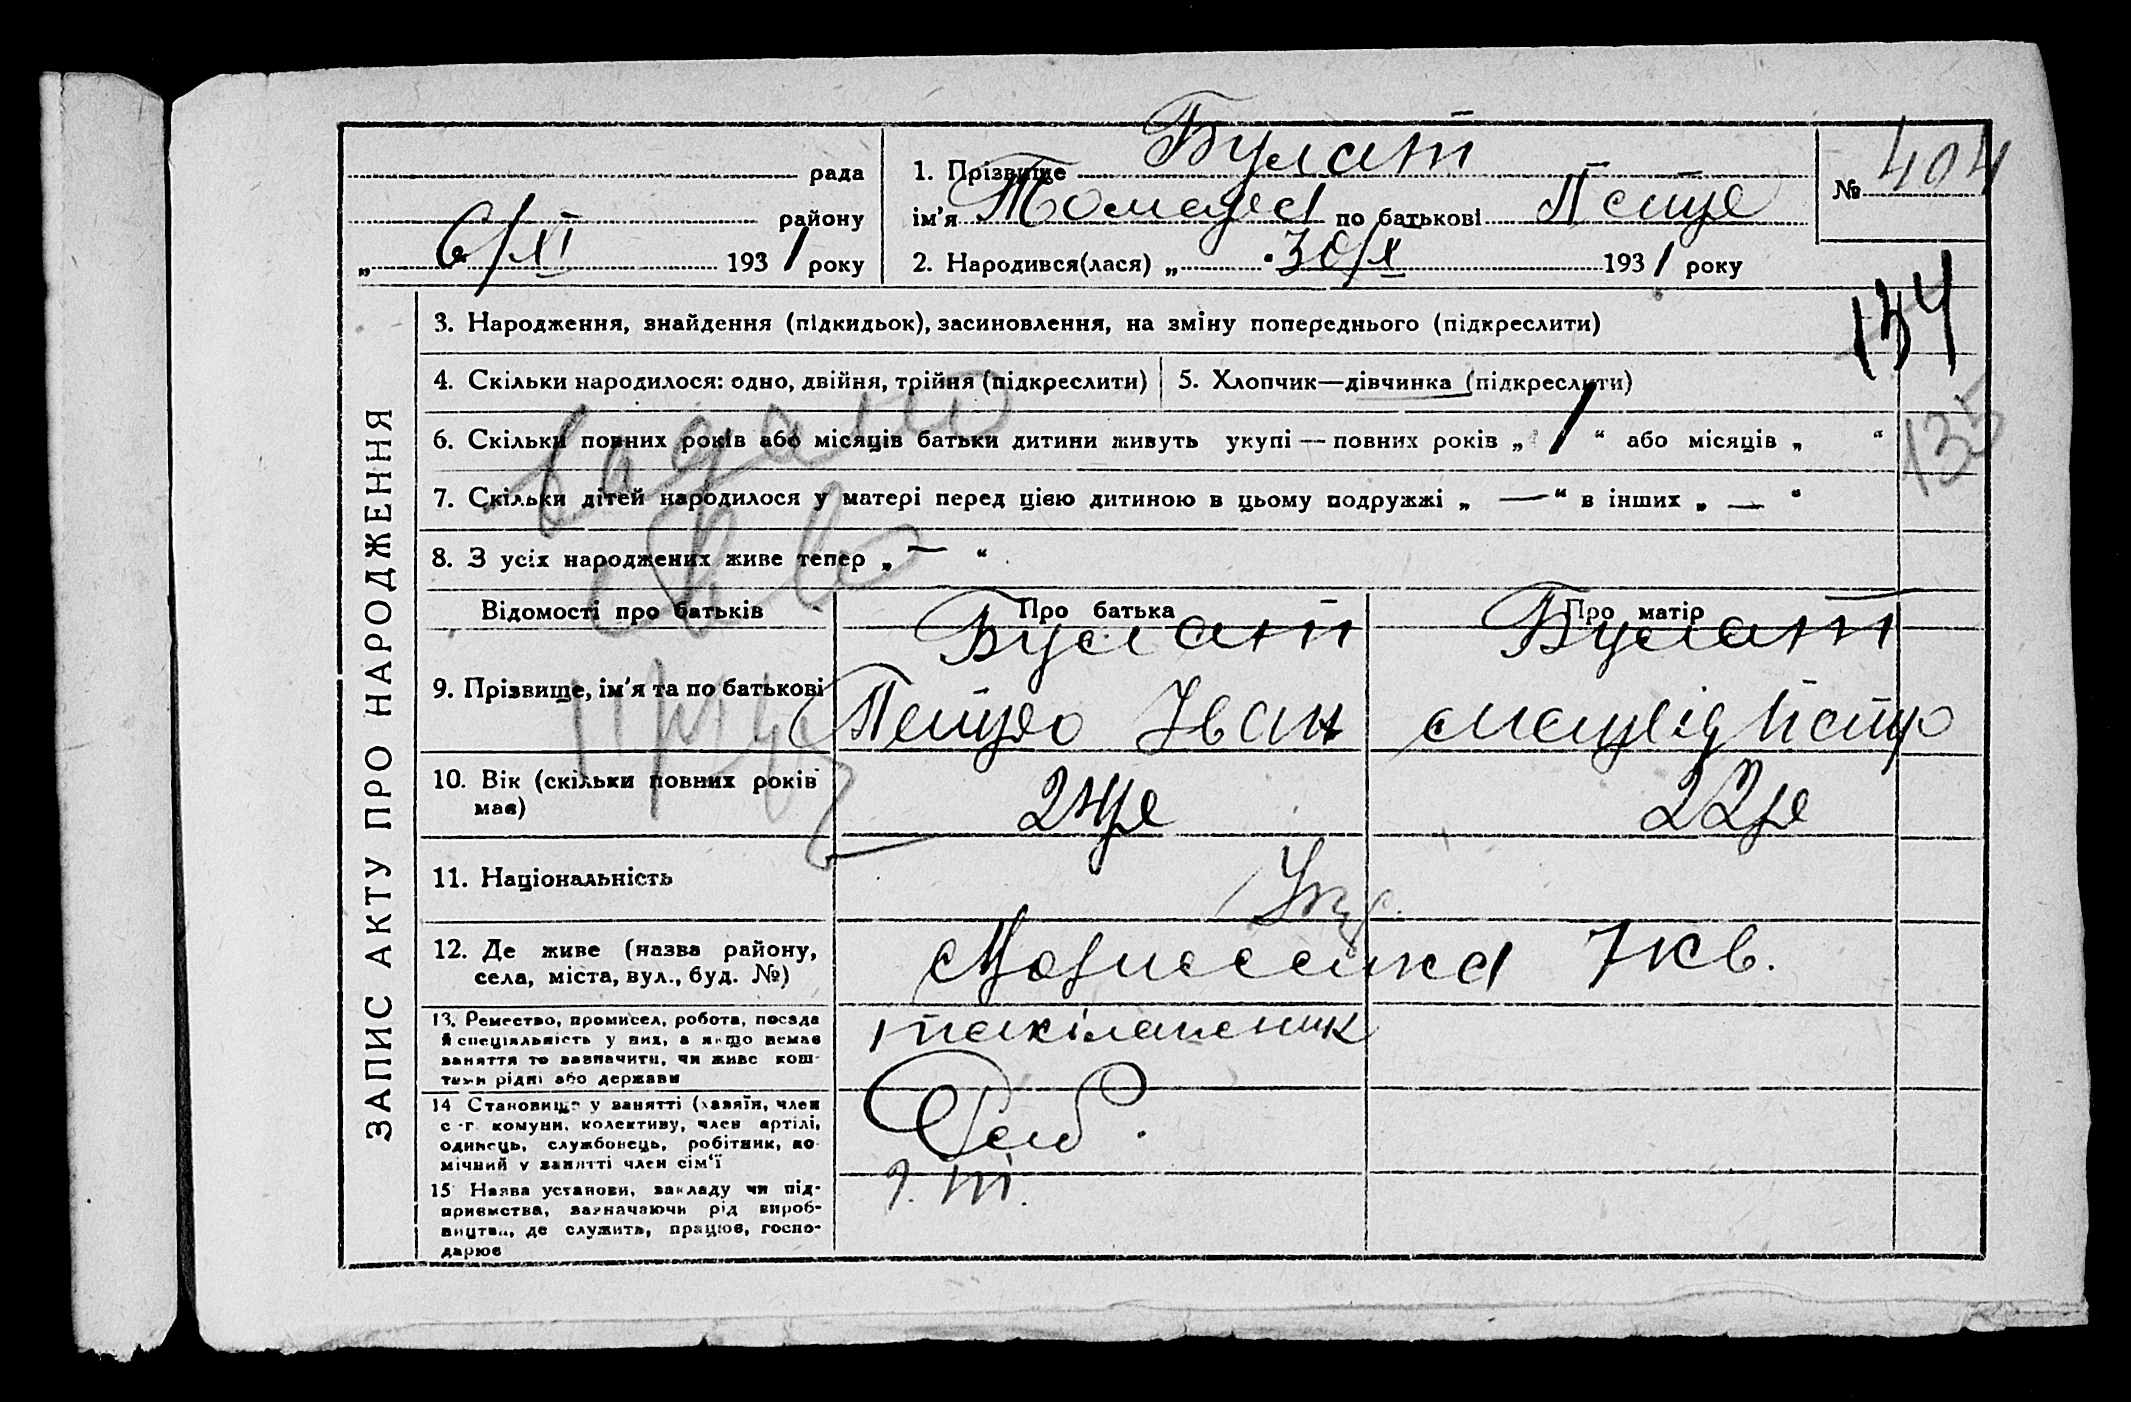 рада
району
6/XI 1931 року
1. Прізвище Булат
ім'я Тамара по батькові Петр
2. Народився(лася) „ 30/X 1931 року
№ 404
134
135
ЗАПИС АКТУ ПРО НАРОДЖЕННЯ
3. Народження, знайдення (підкидьок), засиновлення, на зміну попереднього (підкреслити)
4. Скільки народилося: одно, двійня, трійня (підкреслити)
5. Хлопчик—дівчинка (підкреслити)
6. Скільки повних років або місяців батьки дитини живуть укупі — повних років „ 1 “ або місяців „ “
7. Скільки дітей народилося у матері перед цією дитиною в цьому подружжі „ — “ в інших „ — “
8. З усіх народжених живе тепер „ — “
Відомості про батьків
Про батька
Про матір
9. Прізвище, ім'я та по батькові
Булат
Петро Іван
Булат
Петр
10. Вік (скільки повних років має)
24р
22р
11. Національність
Укр.
12. Де живе (назва району,
села, міста, вул., буд. №)
7 кв.
13. Ремество, промисел, робота, посада
й спеціяльність у них, а якщо немає
заняття то зазначити, чи живе кош-
тами рідні або держави
14 Становище у занятті (хазяїн, член
с.-г. комуни, колективу, член артілі,
одинець, службовець, робітник, по-
мічний у занятті член сім'ї
Роб.
15 Назва установи, закладу чи під-
приємства, зазначаючи рід вироб-
ництва, де служить, працює, госпо-
дарює